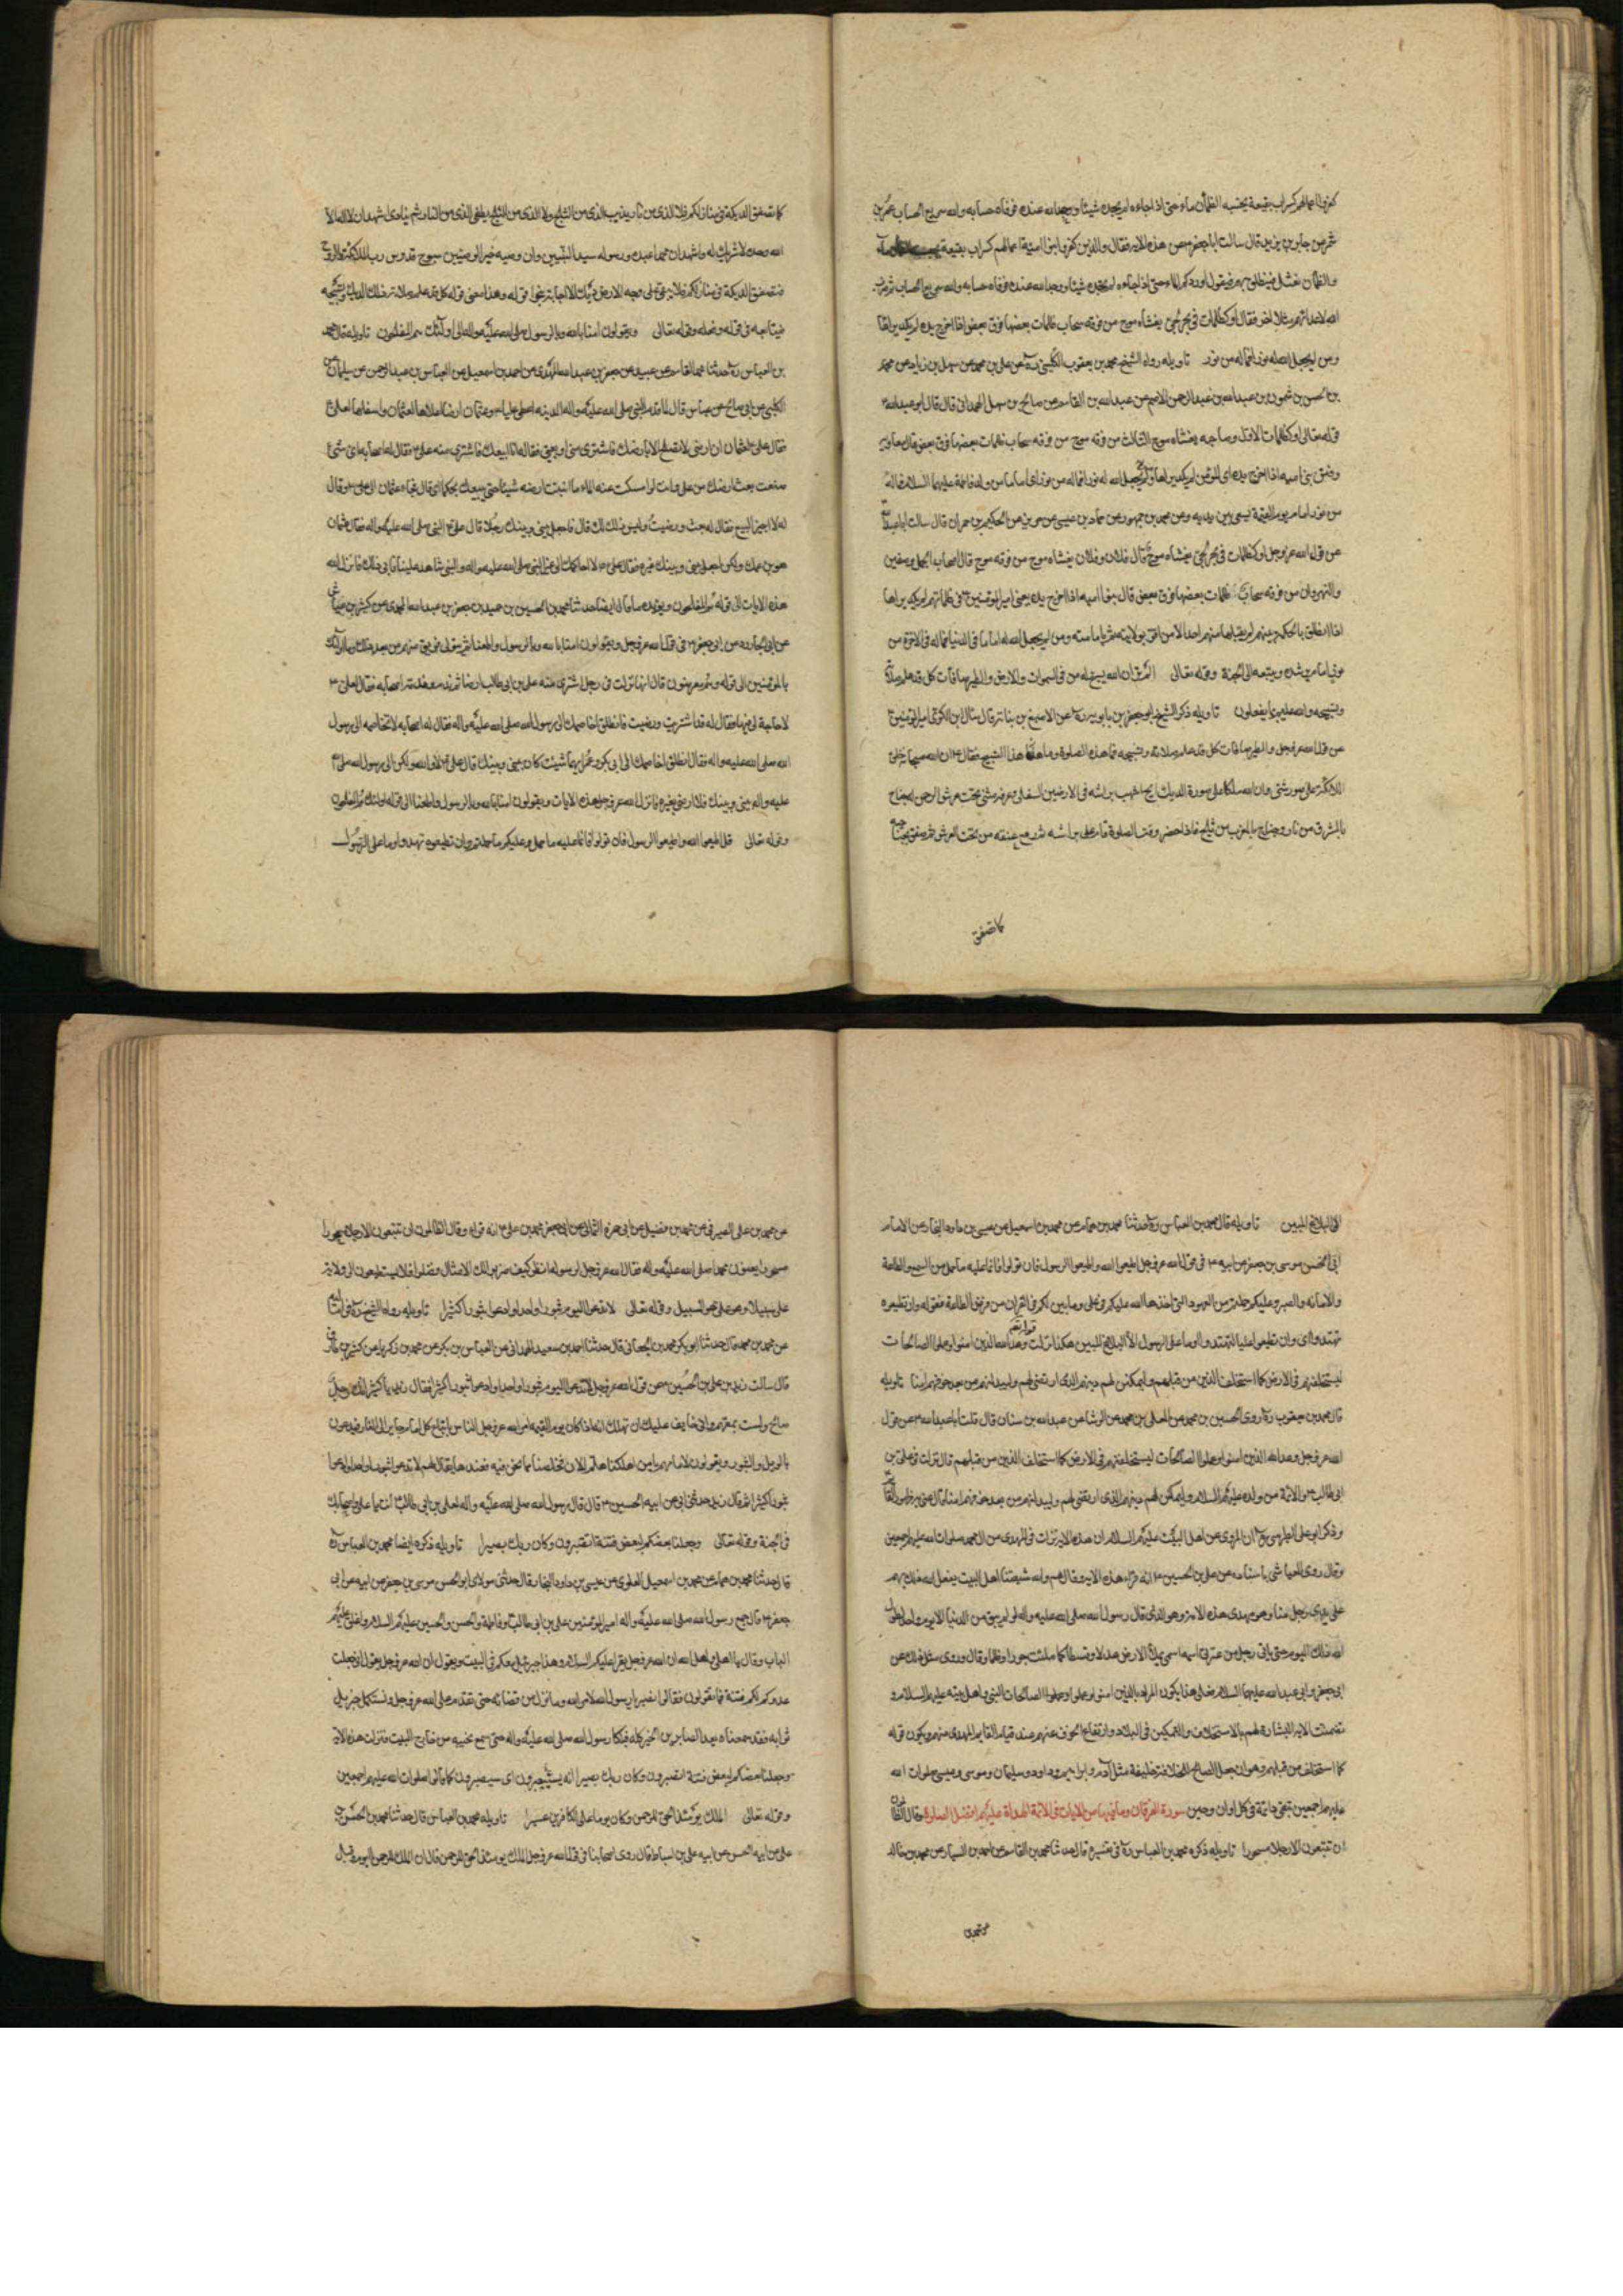 كفروا اعمالهم كسراب بقيعة يحسبه الظمآن ماء حتى اذا جاءه لم يجده شيئا ووجد الله عنده فوفاه حسابه والله سريع الحساب عمرو بن
شمر عن جابر بن يزيد قال سالت ابا جعفر عن هذه الاية فقال والذين كفروا بنوا امية اعمالهم كسراب بقيعة
والظمآن نعثل فينطلق بهم فيقول اوردكم الماء حتى اذا جاءه لم يجده شيئا ووجد الله عنده فوفاه حسابه والله سريع الحساب ثم ضرب
الله لاعدائهم مثلا اخر فقال او كظلمات في بحر لجي يغشاه موج من فوقه سحاب ظلمات بعضها فوق بعض اذا اخرج يده لم يكد يراها
ومن لم يجعل الله له نورا فما له من نور تاويله رواه الشيخ محمد بن يعقوب الكليني ره عن علي بن محمد عن سهل بن زياد عن محمد
بن الحسن بن شمون عن عبدالله بن عبدالرحمن الاصم عن عبدالله بن القاسم عن صالح بن سهل الهمداني قال قال ابو عبدالله ع
قوله تعالى او كظلمات الاول وصاحبه يغشاه موج الثالث من فوقه موج من فوقه سحاب ظلمات بعضها فوق بعض قال معاوية
وفتن بني اميه اذا اخرج يده اي المؤمن لم يكد يراها ومن لم يجعل الله له نورا فما له من نور اي اماما من ولد فاطمة عليهما السلام فما له
من نور امام يوم القيمة يسعى بين يديه وعن محمد بن جمهور عن حماد بن عيسى عن حريز عن الحكم بن حمران قال سالت ابا عبدالله
عن قول الله عز وجل او كظلمات في بحر لجي يغشاه موج قال فلان وفلان يغشاه موج من فوقه موج قال اصحاب الجمل وصفين
والنهروان من فوقه سحاب ظلمات بعضها فوق بعض قال بنوا اميه اذا اخرج يده يعني امير المؤمنين ع في ظلماتهم لم يكد يراها
اذا انطلق بالحكمة بينهم لم يقبلها منهم احد الا من اقر بولايته ثم بامامته ومن لم يجعل الله له اماما في الدنيا فما له في الاخرة من
نور امام يرشده ويتبعه الى الجنة وقوله تعالى الم تر ان الله يسبح له من في السموات والارض والطير صافات كل قد علم صلاته
وتسبيحه والله عليم بما يفعلون تاويله ذكر الشيخ ابو جعفر بن بابويه ره عن الاصبغ بن نباته قال سال ابن الكوا امير المؤمنين ع
عن قول الله عز وجل والطير صافات كل قد علم صلاته وتسبيحه فما هذه الصلوة وما هذا التسبيح فقال ع ان الله سبحانه خلق
الملائكة على صور شتى وان لله ملكا على صورة الديك ابح اشهب براثنه في الارضين السفلى وعرفه مثنى تحت عرش الرحمن له جناح
بالمشرق من نار وجناح بالمغرب من ثلج فاذا حضر وقت الصلوة قام على براثنه ثم رفع عنقه من تحت العرش ثم صفق بجناحيه
كما تصفق
كما تصفق الديكة في منازلكم فلا الذي من نار يذيب الذي من الثلج ولا الذي من الثلج يطفي الذي من النار ثم ينادي اشهد ان لا اله الا
الله وحده لا شريك له واشهد ان محمدا عبده ورسوله سيد النبيين وان وصيه خير الوصيين سبوح قدوس رب الملائكة والروح
فتصفق الديكة في منازلكم فلا يبقى على وجه الارض ديك الا اجابه بنحو قوله وهذا معنى قوله كل قد علم صلاته من ذلك الديك وتسبيحه
فيتابعه في قوله وفعله وقوله تعالى ويقولون امنا بالله وبالرسول الى قوله تعالى اولئك هم المفلحون تاويله قال محمد
بن العباس ره حدثنا محمد بن القاسم عن عبيد عن جعفر بن عبدالله المحمدي عن احمد بن اسمعيل عن العباس بن عبدالرحمن عن سليمان عن
الكلبي عن ابي صالح عن ابن عباس قال لما قدم النبي صلى الله عليه واله المدينه اعطى عليا ع وعثمان ارضا اعلاها لعثمان واسفلها لعلي ع
فقال علي ع لعثمان ان ارضي لا تصلح الا بارضك فاشتري مني او بعني فقال له انا ابيعك فاشترى منه علي ع فقال له اصحابه اي شئ
صنعت بعت ارضك من علي وانت لو امسكت عنه الماء ما انبتت ارضه شيئا حتى يبيعك بحكمك قال فجاء عثمان الى علي ع وقال
له لا اجيز البيع فقال له بعت ورضيت وليس ذلك لك قال فاجعل بيني وبينك رجلا قال علي ع النبي صلى الله عليه واله فقال عثمان
هو ابن عمك ولكن اجعل بيني وبينك غيره فقال علي ع لا احاكمك الى غير النبي صلى الله عليه واله والنبي شاهد علينا فابى ذلك فانزل الله
هذه الايات الى قوله هم المفلحون ويؤيده ما قال ايضا حدثنا محمد بن الحسين بن حميد عن جعفر بن عبدالله المحمدي عن كثير بن عياش
عن ابي الجارود عن ابي جعفر ع في قول الله عز وجل ويقولون امنا بالله وبالرسول واطعنا ثم يتولى فريق منهم من بعد ذلك وما اولئك
بالمؤمنين الى قوله وهم معرضون قال انها نزلت في رجل اشترى منه علي بن ابي طالب ارضا ثم ندم وندمه اصحابه فقال لعلي ع
لا حاجة لي فيها فقال له قد اشتريت ورضيت فانطلق اخاصمك الى رسول الله صلى الله عليه واله فقال له اصحابه لا تخاصمه الى رسول
الله صلى الله عليه واله فقال انطلق اخاصمك الى ابي بكر وعمر ايهما شئت كان بيني وبينك قال علي ع لا والله ولكن الى رسول الله صلى الله
عليه واله بيني وبينك فلا ارضى بغيره فانزل الله عز وجل هذه الايات ويقولون امنا بالله وبالرسول واطعنا الى قوله اولئك هم المفلحون
وقوله تعالى قل اطيعوا الله واطيعوا الرسول فان تولوا فانما عليه ما حمل وعليكم ما حملتم وان تطيعوه تهتدوا وما على الرسول
الا البلاغ المبين تاويله قال محمد بن العباس ره حدثنا محمد بن همام عن محمد بن اسمعيل عن عيسى بن داود النجار عن الامام
ابي الحسن موسى بن جعفر عن ابيه ع في قول الله عز وجل اطيعوا الله واطيعوا الرسول فان تولوا فانما عليه ما حمل من السمع والطاعة
والامانه والصبر وعليكم ما حملتم من العهود التي اخذها الله عليكم في علي وما بين لكم في القران من فرض الطاعة فقوله وان تطيعوه
تهتدوا اي وان تطيعوا عليا تهتدوا وما على الرسول الا البلاغ المبين هكذا نزلت وقوله تعالى وعد الله الذين امنوا وعملوا الصالحات
ليستخلفنهم في الارض كما استخلف الذين من قبلهم وليمكنن لهم دينهم الذي ارتضى لهم وليبدلنهم من بعد خوفهم امنا تاويله
قال محمد بن يعقوب ره روى الحسين بن محمد عن المعلى بن محمد عن الوشا عن عبدالله بن سنان قال قلت لابي عبدالله ع عن قول
الله عز وجل وعد الله الذين امنوا وعملوا الصالحات ليستخلفنهم في الارض كما استخلف الذين من قبلهم قال نزلت في علي بن
ابي طالب ع والائمة من ولده عليهم السلام وليمكنن لهم دينهم الذي ارتضى لهم وليبدلنهم من بعد خوفهم امنا قال عنى به ظهور القائم
وذكر ابو علي الطبرسي ره ان المروي عن اهل البيت عليهم السلام ان هذه الاية نزلت في المهدي من ال محمد صلوات الله عليهم اجمعين
وقال روى العياشي باسناده عن علي بن الحسين ع انه قراء هذه الاية وقال هم والله شيعتنا اهل البيت يفعل الله ذلك بهم
على يدي رجل منا وهو مهدي هذه الامة وهو الذي قال رسول الله صلى الله عليه واله لو لم يبق من الدنيا الا يوم واحد لطول
الله ذلك اليوم حتى ياتي رجل من عترتي اسمه اسمي يملأ الارض عدلا وقسطا كما ملئت جورا وظلما وقال وروى مثل ذلك عن
ابي جعفر وابي عبدالله عليهما السلام فعلى هذا يكون المراد بالذين امنوا وعملوا الصالحات النبي واهل بيته عليهم السلام و
تضمنت الاية البشارة لهم بالاستخلاف والتمكين في البلاد وارتفاع الخوف عنهم عند قيام القايم المهدي منهم ويكون قوله
كما استخلف من قبلهم وهو ان جعل الصالح للخلافة خليفة مثل آدم وابراهيم وداود وسليمان وموسى وعيسى صلوات الله
عليهم اجمعين تبقى دائمة في كل اوان وحين سورة الفرقان وما فيها من الايات في الائمة الهداة عليهم افضل الصلوة وقال الظالمون
ان تتبعون الا رجلا مسحورا تاويله ذكره محمد بن العباس ره في تفسيره قال حدثنا محمد بن القاسم عن احمد بن السياري عن محمد بن خالد
عن محمد بن علي الصيرفي عن محمد بن فضيل عن ابي حمزه الثمالي عن ابي جعفر محمد بن علي ع انه قراء وقال الظالمون ان تتبعون الا رجلا مسحورا
مسحورا يعنون محمدا صلى الله عليه واله فقال الله عز وجل لرسوله انظر كيف ضربوا لك الامثال وضلوا فلا يستطيعون الى ولاية
علي سبيلا وعلي هو السبيل وقوله تعالى لا تدعوا اليوم ثبورا واحدا وادعوا ثبورا كثيرا تاويله رواه الشيخ ره في اماليه
عن محمد بن محمد قال حدثنا ابو بكر محمد بن الجعابي قال حدثنا احمد بن سعيد الهمداني عن العباس بن بكر عن محمد بن زكريا عن كثير بن طارق
قال سالت زيد بن علي بن الحسين ع عن قول الله عز وجل لا تدعوا اليوم ثبورا واحدا وادعوا ثبورا كثيرا فقال زيد يا كثير انك رجل
صالح ولست بمتهم واني خايف عليك ان تهلك انه اذا كان يوم القيمه امر الله عز وجل الناس باتباع كل امام جاير الى النار فيدعون
بالويل والثبور ويقولون لامامهم يا من اهلكنا هلم الان فخلصنا مما نحن فيه فعندها يقال لهم لا تدعوا اليوم ثبورا واحدا وادعوا
ثبورا كثيرا ثم قال زيد حدثني ابي عن ابيه الحسين ع قال قال رسول الله صلى الله عليه واله لعلي بن ابي طالب ع انت يا علي واصحابك
في الجنة وقوله تعالى وجعلنا بعضكم لبعض فتنة اتصبرون وكان ربك بصيرا تاويله ذكره ايضا محمد بن العباس ره
قال حدثنا محمد بن همام عن محمد بن اسمعيل العلوي عن عيسى بن داود النجار قال حدثني مولاي ابو الحسن موسى بن جعفر عن ابيه عن ابي
جعفر ع قال جمع رسول الله صلى الله عليه واله امير المؤمنين علي بن ابي طالب وفاطمة والحسن والحسين عليهم السلام واغلق عليهم
الباب وقال يا اهلي واهل الله ان الله عز وجل يقرأ عليكم السلام وهذا جبرئيل معكم في البيت ويقول ان الله عز وجل يقول اني جعلت
عدوكم لكم فتنة فما تقولون فقالوا نصبر يا رسول الله لامر الله وما نزل من قضائه حتى نقدم على الله عز وجل ونستكمل جزيل
ثوابه فقد سمعناه يعد الصابرين الخير كله فبكا رسول الله صلى الله عليه واله حتى سمع نحيبه من خارج البيت فنزلت هذه الاية
وجعلنا بعضكم لبعض فتنة اتصبرون وكان ربك بصيرا انه يستجيبون اي سيصبرون كما قالوا صلوات الله عليهم اجمعين
وقوله تعالى الملك يومئذ الحق للرحمن وكان يوما على الكافرين عسيرا تاويله محمد بن العباس قال حدثنا محمد بن الحسن
علي عن ابيه الحسن عن ابيه علي بن اسباط قال روى اصحابنا في قول الله عز وجل الملك يومئذ الحق للرحمن قال ان الملك للرحمن اليوم وقبل